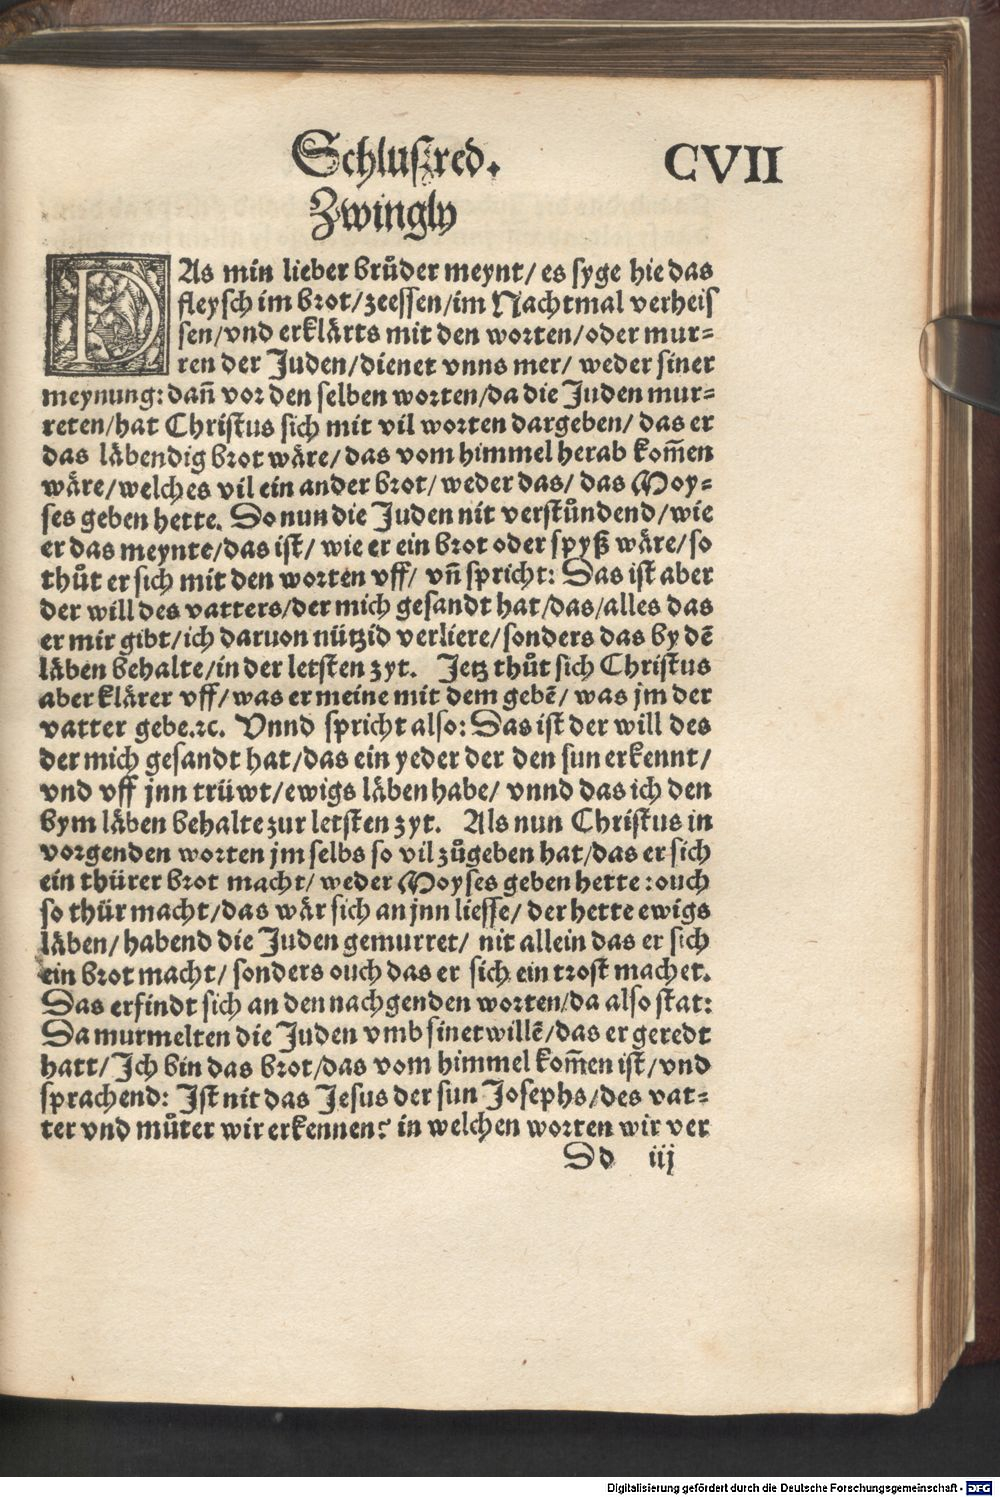 Schluſzred. CVII
Zwingly
DAs min lieber brůder meynt/ es syge hie das
fleysch im brot/ zeessen/im Nachtmal verheis
sen/vnd erklärts mit den worten/oder mur⸗
ren der Juden/dienet vnns mer/ weder siner
meynung: dañ vor den selben worten/da die Juden mur⸗
reten/hat Christus sich mit vil worten dargeben/ das er
das läbendig brot wäre/das vom himmel herab kom̃en
wäre/welches vil ein ander brot/ weder das/ das Moy⸗
ses geben hette. So nun die Juden nit verstůndend/wie
er das meynte/das ist/ wie er ein brot oder spyß wäre/so
thůt er sich mit den worten vff/ vñ spricht: Das ist aber
der will des vatters/der mich gesandt hat/das/alles das
er mir gibt/ich daruon nützid verliere/sonders das by dē
läben behalte/in der letsten zyt. Jetz thůt sich Christus
aber klärer vff/was er meine mit dem gebē/ was jm der
vatter gebe.ꝛc. Vnnd spricht also: Das ist der will des
der mich gesandt hat/das ein yeder der den sun erkennt/
vnd vff jnn trüwt/ewigs läben habe/ vnnd das ich den
bym läben behalte zur letsten zyt. Als nun Christus in
vorgenden worten jm selbs so vil zůgeben hat/das er sich
ein thürer brot macht/ weder Moyses geben hette: ouch
so thür macht/das wär sich an jnn liesse/ der hette ewigs
läben/habend die Juden gemurret/ nit allein das er sich
ein brot macht/ sonders ouch das er sich ein trost machet.
Das erfindt sich an den nachgenden worten/da also stat:
Da murmelten die Juden vmb sinet willē/das er geredt
hatt/ Ich bin das brot/das vom himmel kom̃en ist/vnd
sprachend: Ist nit das Jesus der sun Josephs/des vat⸗
ter vnd můter wir erkennen? in welchen worten wir ver
Dd iij
Digitalisierung gefördert durch die Deutsche Forschungsgemeinschaft - DFG